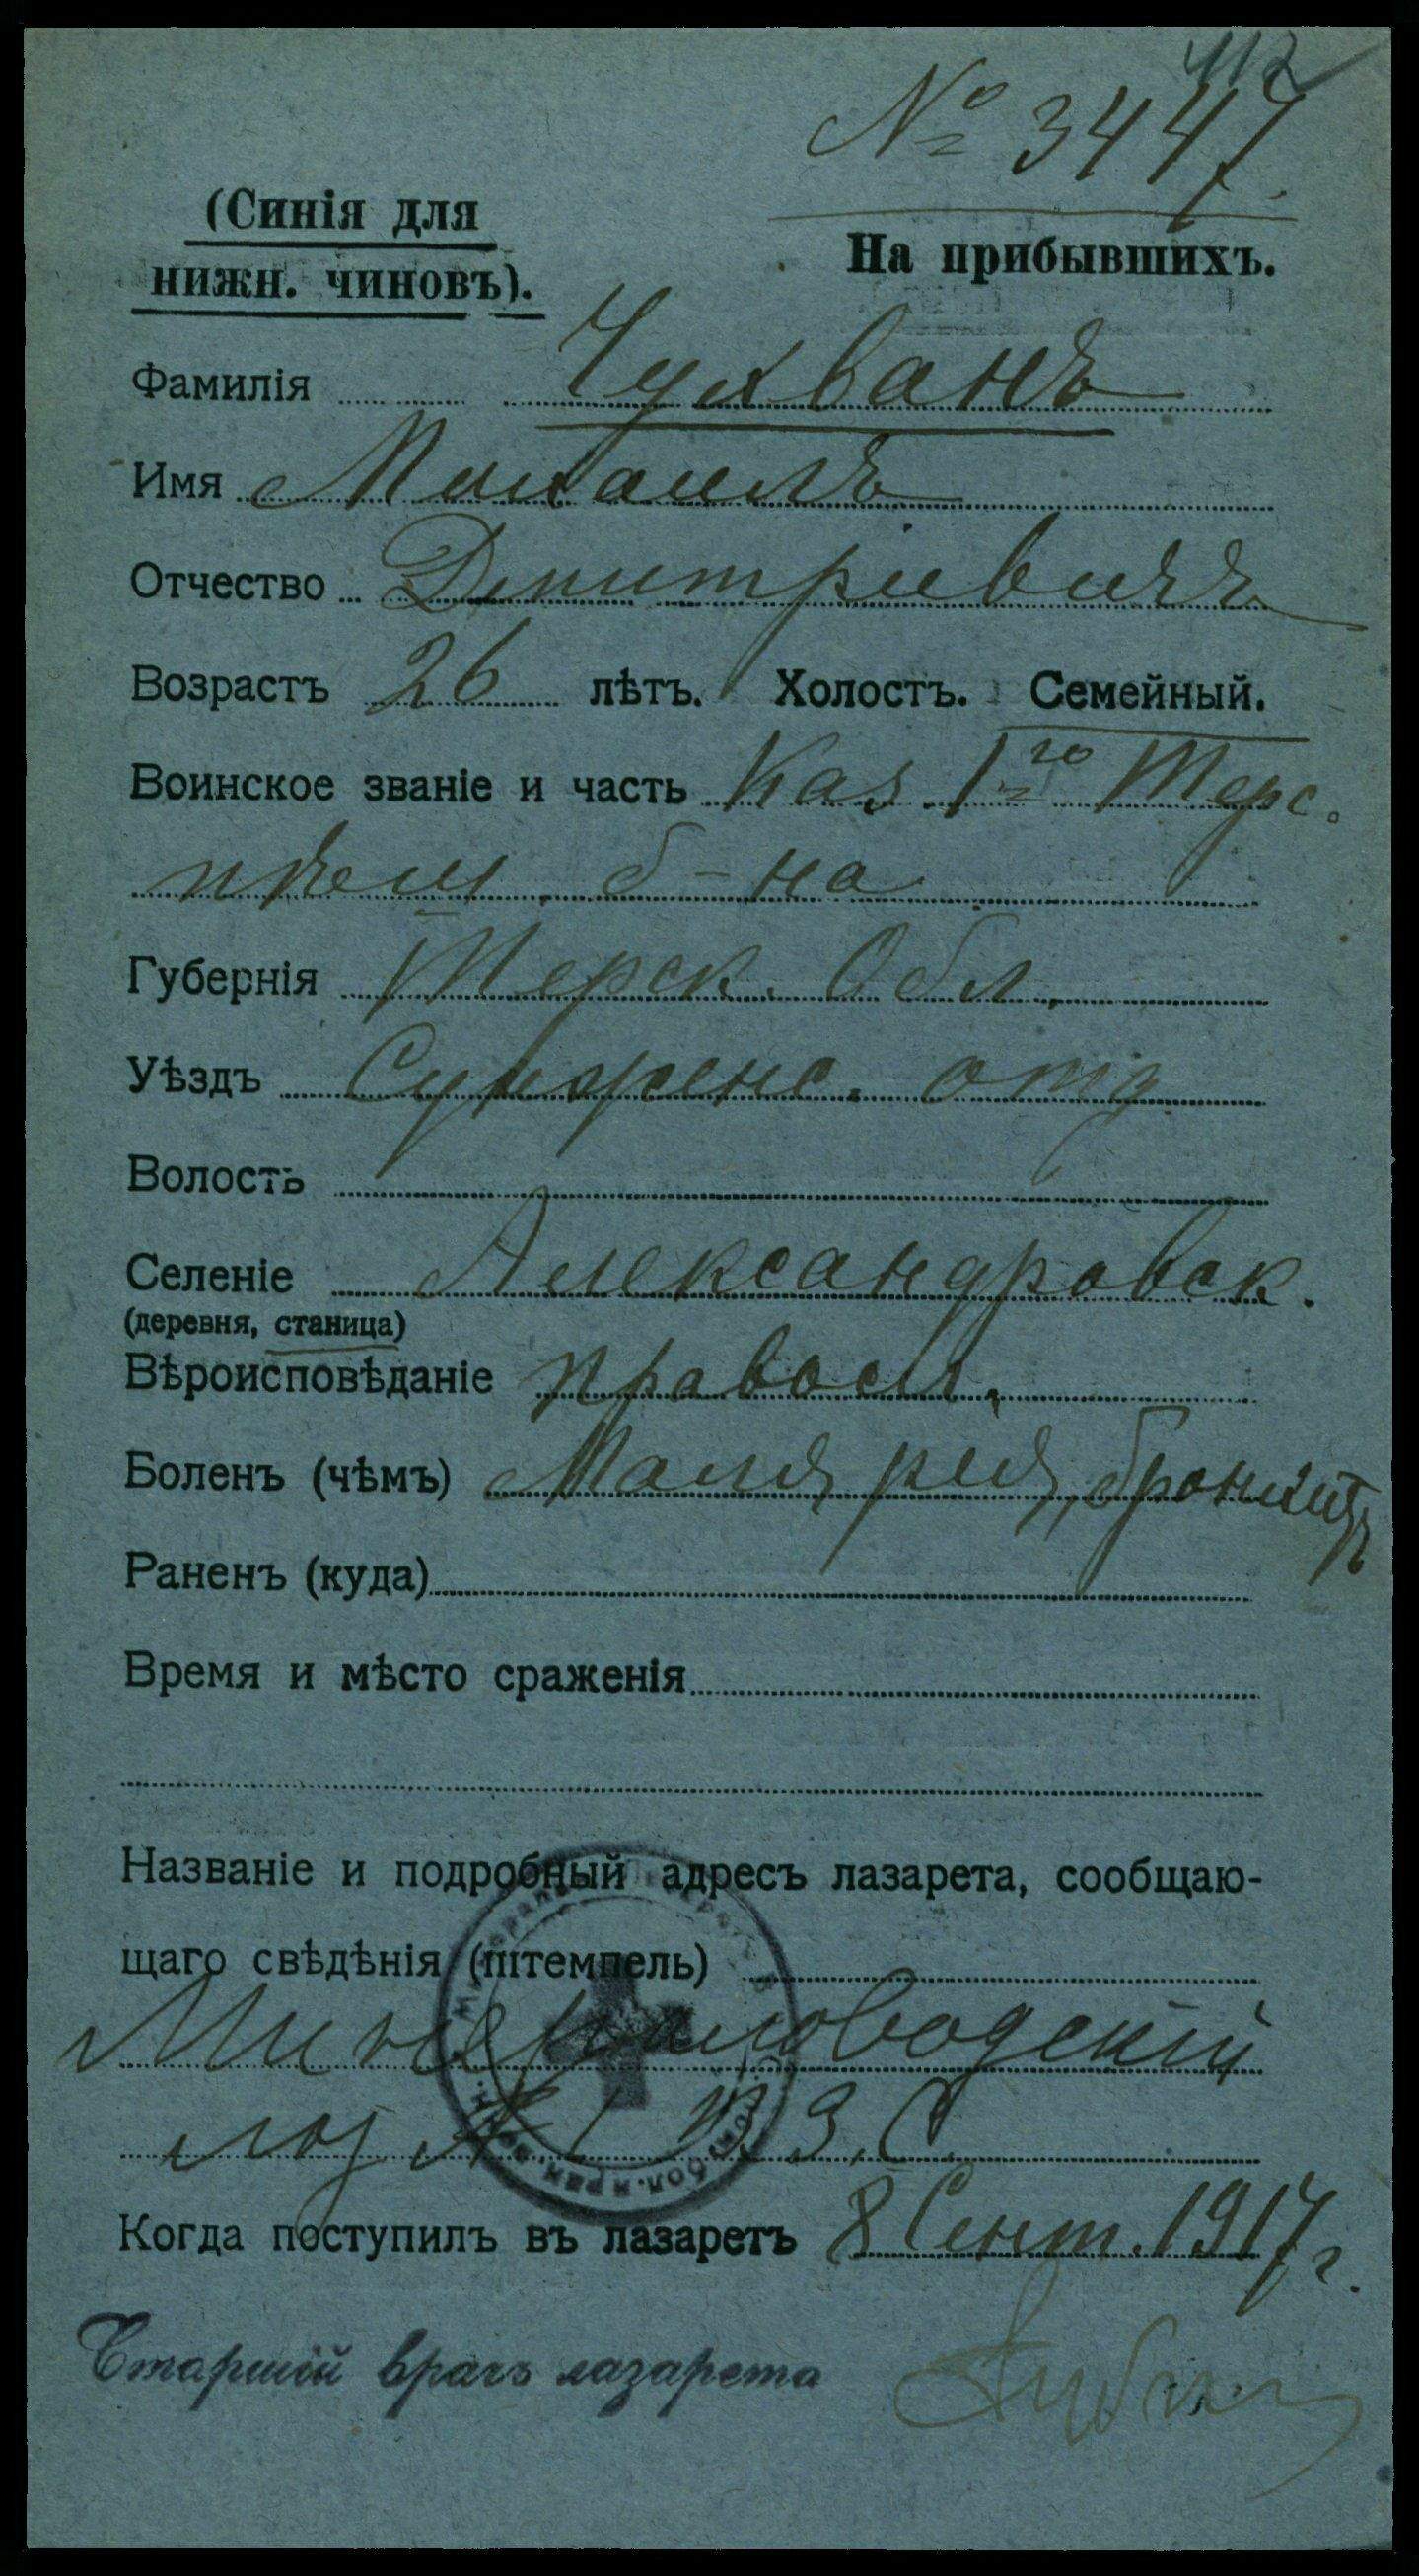 112
№ 3447.
(Синія для
нижн. чиновъ).
На прибывшихъ.
Фамилія Чухванъ
Имя Михаилъ
Отчество Дмитріевичъ
Возрастъ 26 лѣтъ. Холостъ. Семейный.
Воинское званіе и часть Каз. 1го Терс.
пѣш. б-на
Губернія Терск. Обл.
Уѣздъ Сунженс. отд.
Волость
Селеніе Александровск.
(деревня, станица)
Вѣроисповѣданіе правосл.
Боленъ (чѣмъ) Малярия, бронхитъ
Раненъ (куда)
Время и мѣсто сраженія
Названіе и подробный адресъ лазарета, сообщаю-
щаго свѣдѣнія (штемпель)
Минераловодскій
лаз № 1 В. З. С.
Когда поступилъ въ лазаретъ 8 Сент. 1917 г.
Старшій врачъ лазарета